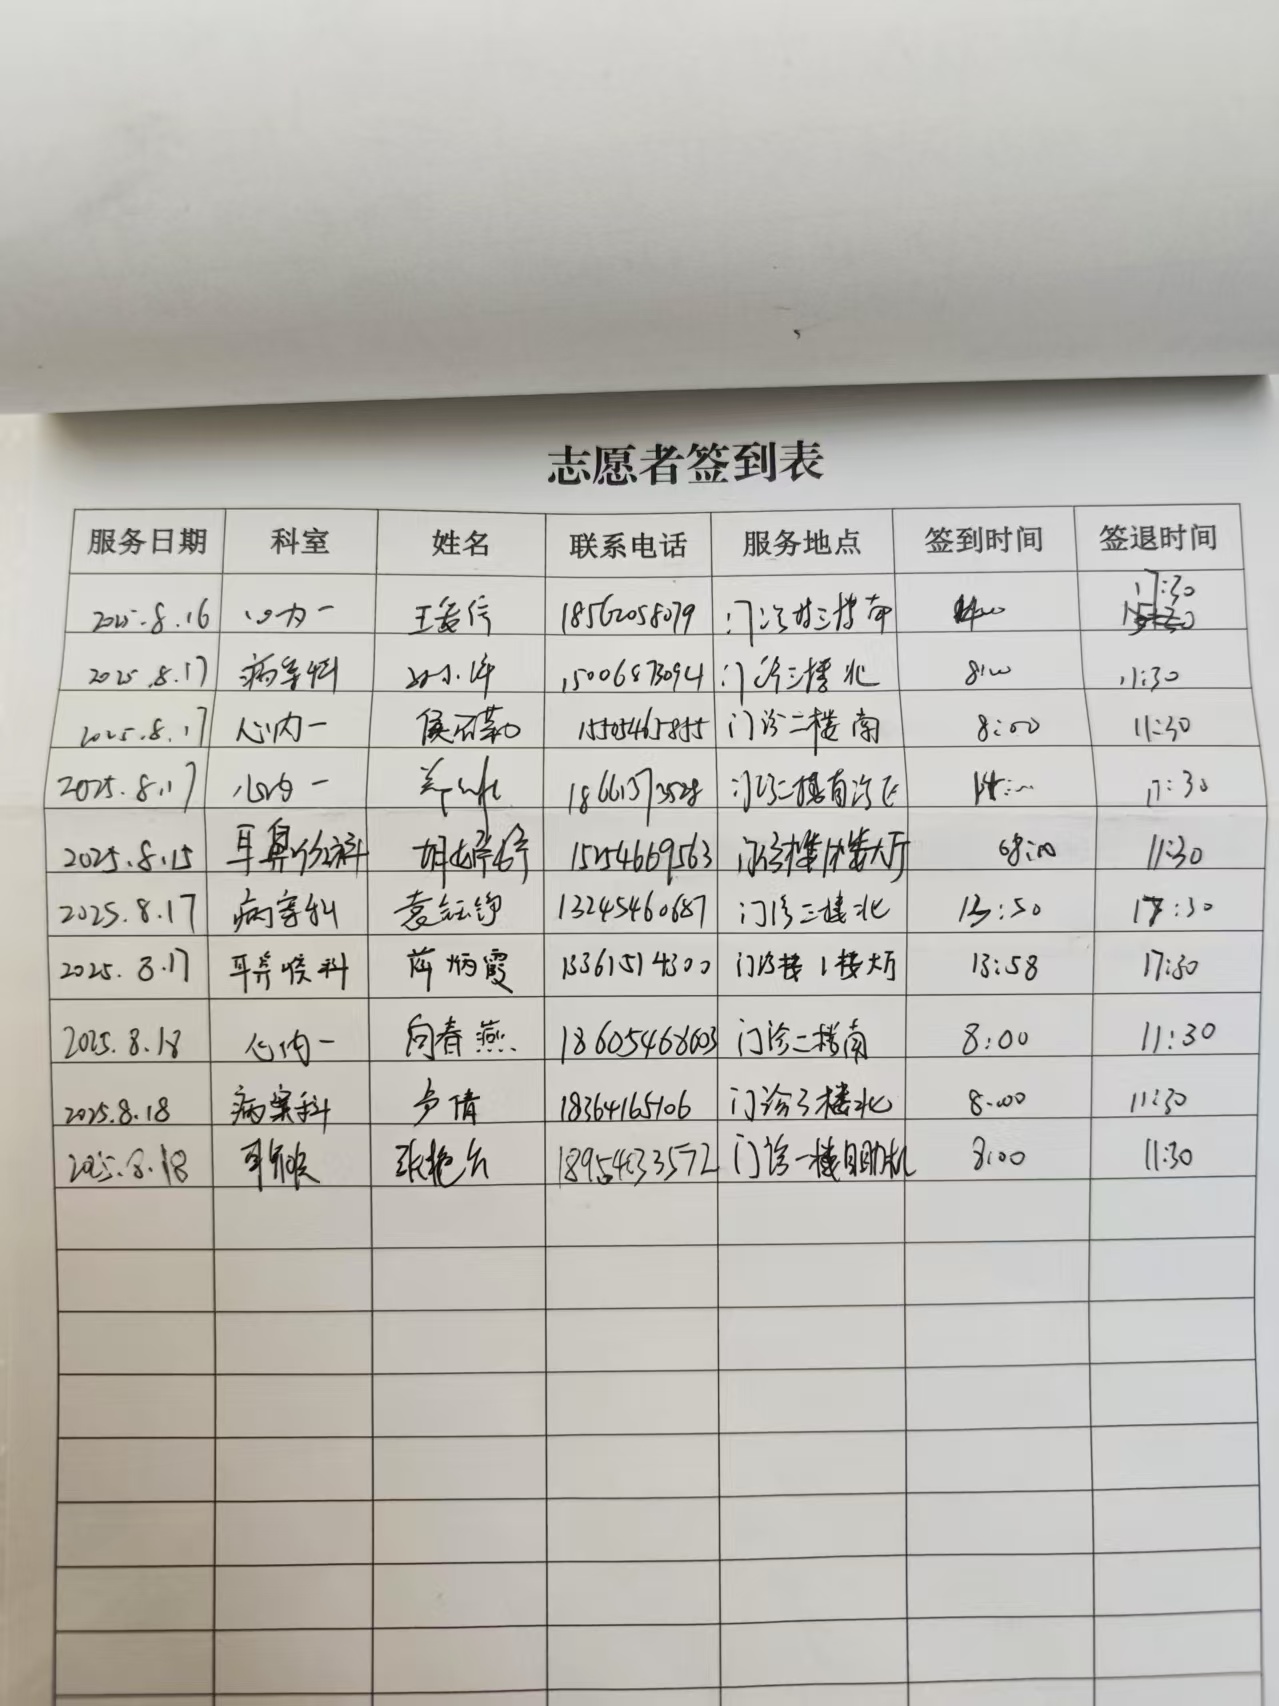 志愿者签到表
服务日期 科室 姓名 联系电话 服务地点 签到时间 签退时间
2025.8.16 心内一 18562058079 17:30
2025.8.17 病案科 15006873094 门诊三楼北 8:00 11:30
2025.8.17 心内一 侯 15505465855 门诊二楼南 8:00 11:30
2025.8.17 心内一 14:00 17:30
2025.8.15 耳鼻喉科 胡婷婷 15254669563 门诊楼1楼大厅 08:00 11:30
2025.8.17 病案科 袁钰铮 13245460687 门诊三楼北 13:50 17:30
2025.8.17 耳鼻喉科 薛炳霞 13361514300 门诊楼1楼大厅 13:58 17:30
2025.8.18 心内一 向春燕 18605468603 门诊二楼南 8:00 11:30
2025.8.18 病案科 倩 18364165106 门诊3楼北 8:00 11:30
2025.8.18 耳鼻喉 张艳 18954633572 门诊一楼自助机 8:00 11:30